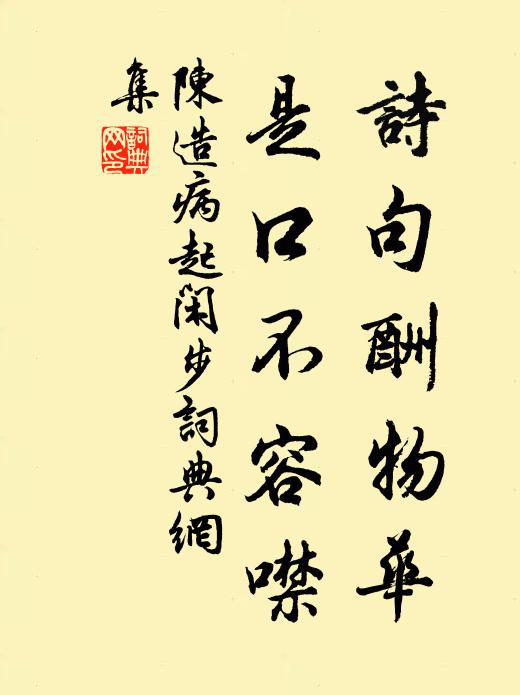 詩句酬物華
是口不容噤
陳造病起閑步詞典網
集
詞典
网印